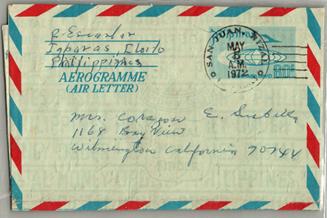 R. Escanlar
Taparas, Iloilo
Philippines
AEROGRAMME
(AIR LETTER)
SAN JUAN, RIZAL
MAY
A.M.
1972
Mrs. Corazon E.
1168 Bay View
Wilmington California 90744